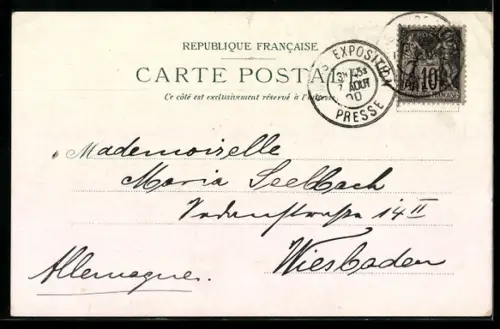 REPUBLIQUE FRANÇAISE
CARTE POSTALE
Ce côté est exclusivement réservé à l'adresse
EXPOSITION
7 AOUT
00
PRESSE
10
Mademoiselle
Maria Seelbach
14 II
Wiesbaden
Allemagne.